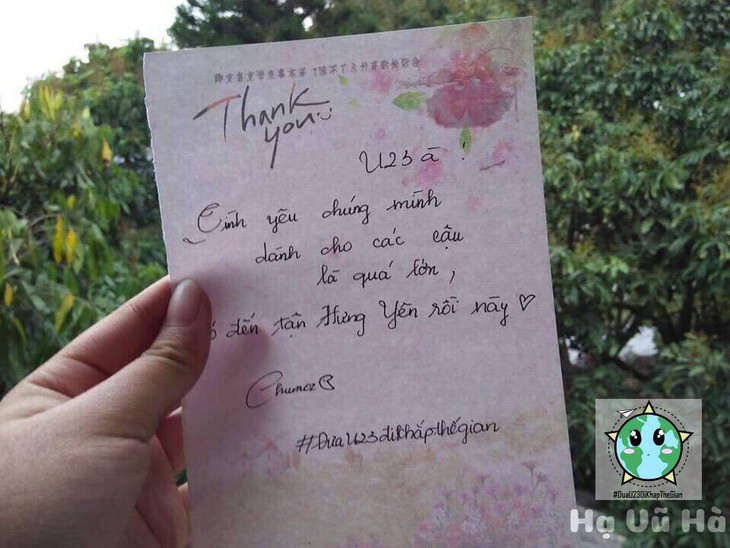 Thank
you
U23 à !
Tình yêu chúng mình
dành cho các cậu
là quá lớn,
đến tận Hưng Yên rồi này ♡
Chumcz
#ĐưaU23đikhắpthếgian
#DuaU23DiKhapTheGian
Hạ Vũ Hà